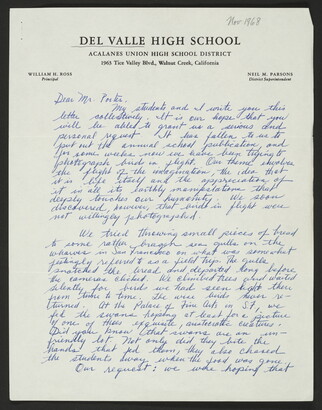 Nov 1968
DEL VALLE HIGH SCHOOL
ACALANES UNION HIGH SCHOOL DISTRICT
1963 Tice Valley Blvd., Walnut Creek, California
WILLIAM H. ROSS
Principal
NEIL M. PARSONS
District Superintendent
Dear Mr. Porter,
My students and I write you this
letter collectively. It is our hope that you
will be able to grant us a serious and
personal request. It has fallen to us to
put out the annual school publication, and
for some weeks now we have been trying to
photograph birds in flight. Our theme involves
the flight of the imagination, the idea that
it is life itself and the appreciation of
it in all its earthly manifestations that
deeply touches our humanity. We soon
discovered, however, that birds in flight were
not willingly photographed.
We tried throwing small pieces of bread
to some rather sea gulls on the
wharves in San Francisco on what was somewhat
referred to as a field trip. The gulls
snatched the bread and departed long before
the cameras clicked. We climbed trees and waited
silently for birds we had seen light there
from time to time. The wise birds never re-
turned. At the Palace of Fine Arts in S.F., we
fed the swans hoping at least for a picture
of one of these exquisite, aristocratic creatures.
Did you know that swans are an un-
friendly lot? Not only did they bite the
hands that fed them, they also chased
the students away when the food was gone.
Our request: we were hoping that